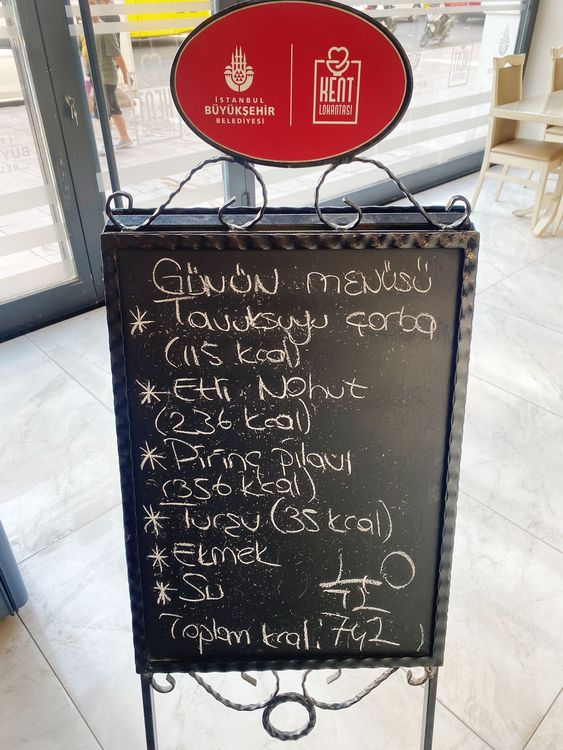 İSTANBUL
BÜYÜKŞEHİR
BELEDİYESİ
KENT
LOKANTASI
GÜNÜN MENÜSÜ
* Tavuksuyu çorba
(115 kcal)
* Etli Nohut
(236 kcal)
* Pirinç pilavı
(356 kcal)
* Turşu (35 kcal)
* Ekmek
* Su
40
TL
Toplam kcal: 742